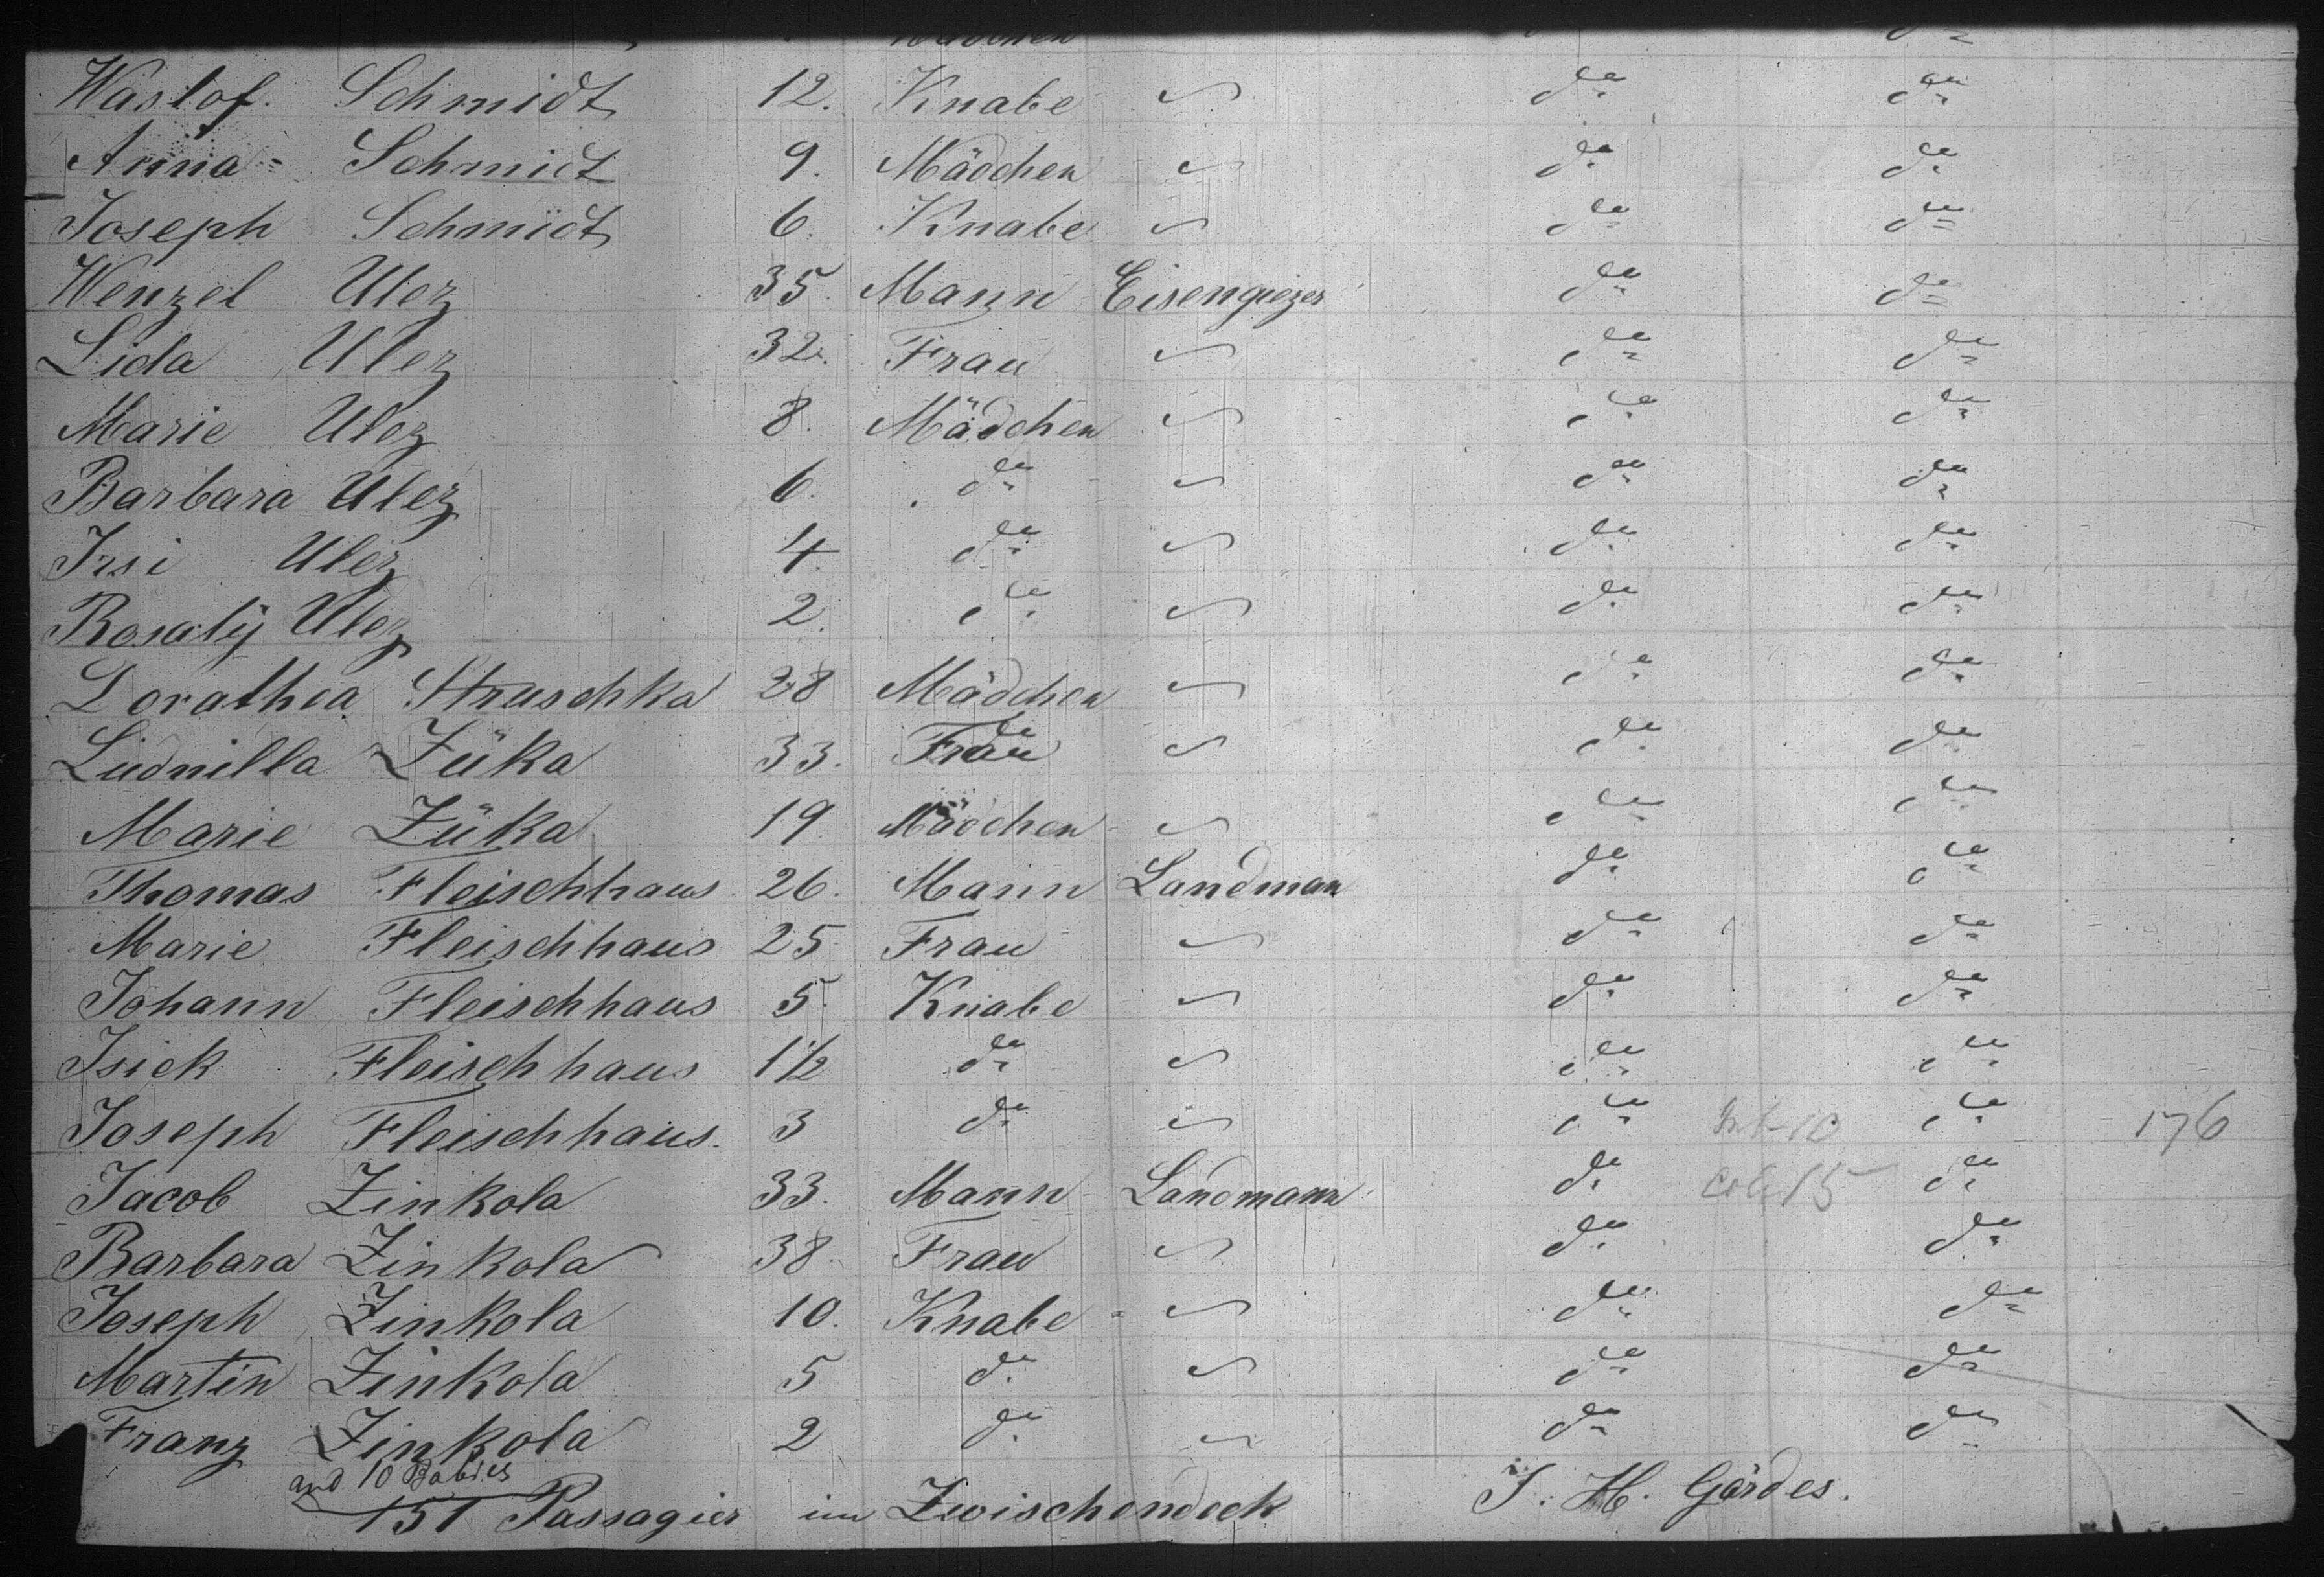 Waslof. Schmidt 12. Knabe ~ do do
Anna Schmidt 9. Mädchen ~ do do
Joseph Schmidt 6. Knabe ~ do do
Wenzel Ulez 35. Mann Eisengiezer do do
Lida Ulez 32. Frau ~ do do
Marie Ulez 8. Mädchen ~ do do
Barbara Ulez 6. do ~ do do
Irsi Ulez 4. do ~ do do
Rosalÿ Ulez 2. do ~ do do
Dorathea Struschka 28 Mädchen ~ do do
Ludmilla Züka 33. Frau ~ do do
Marie Züka 19. Mädchen ~ do do
Thomas Fleischhaus 26. Mann Landman do do
Marie Fleischhaus 25 Frau ~ do do
Johann Fleischhaus 5. Knabe ~ do do
Isick Fleischhaus 1 1/2 do ~ do do
Joseph Fleischhaus. 3 do ~ do 10 do 176
Jacob Zinkola 33. Mann Landmann do 15 do
Barbara Zinkola 38. Frau ~ do do
Joseph Zinkola 10. Knabe ~ do do
Martin Zinkola 5 do ~ do do
Franz Zinkola 2 do ~ do do
and 10 Babies
151 Passagier im Zwischendeck J. H. Gerdes.